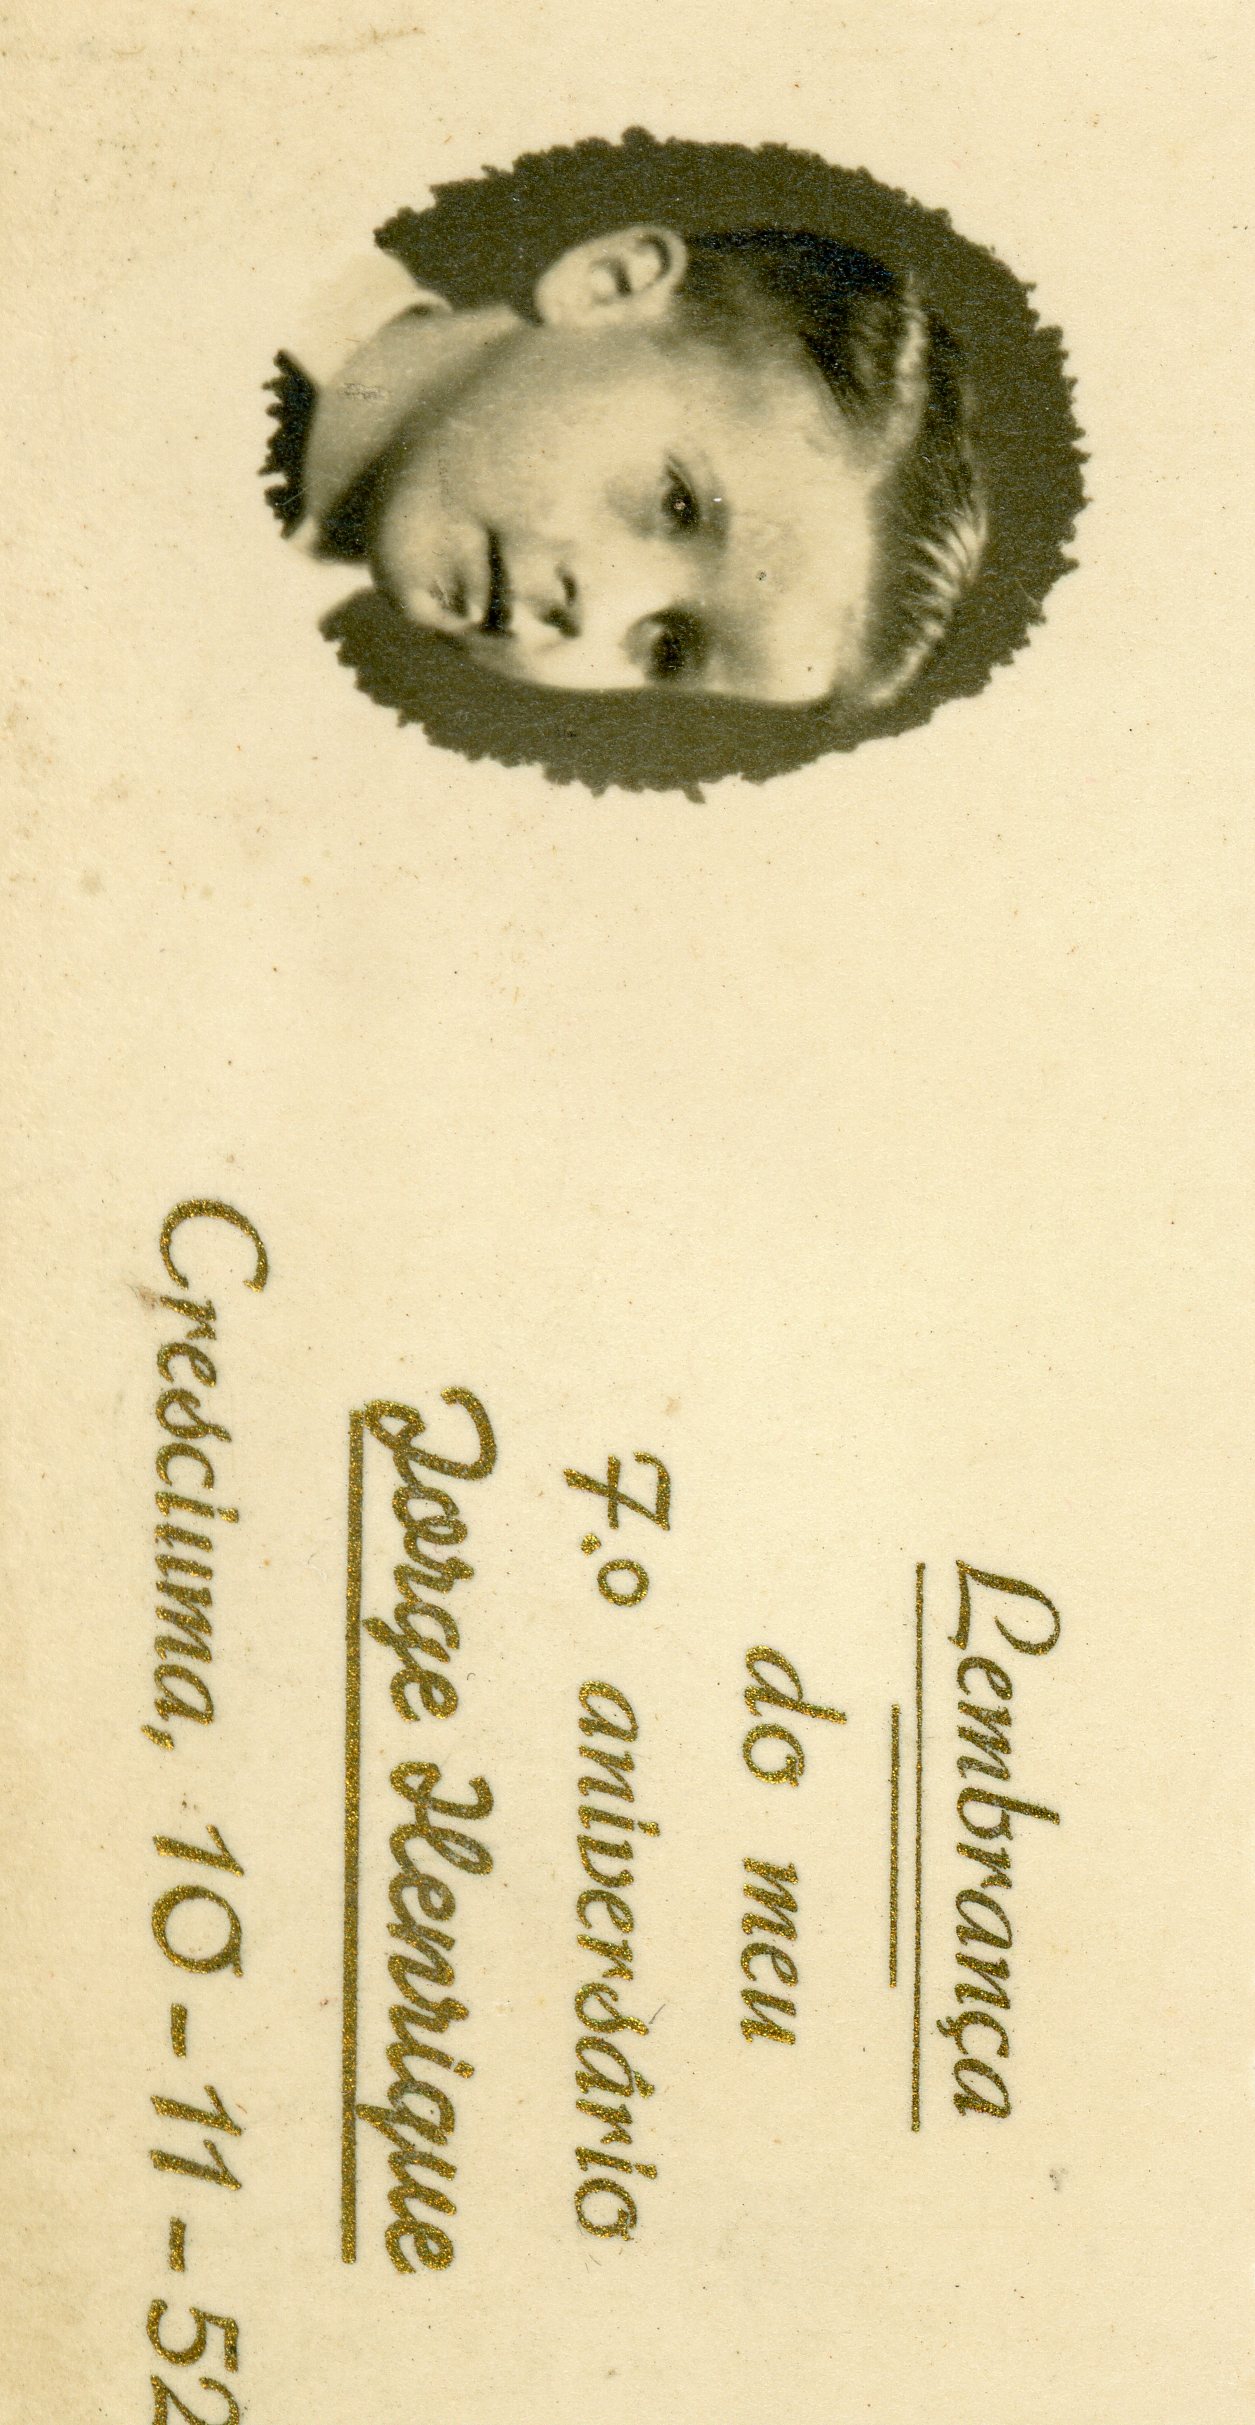 Lembrança
do meu
7.o aniversário
Jorge Henrique
Cresciuma, 10-11-52